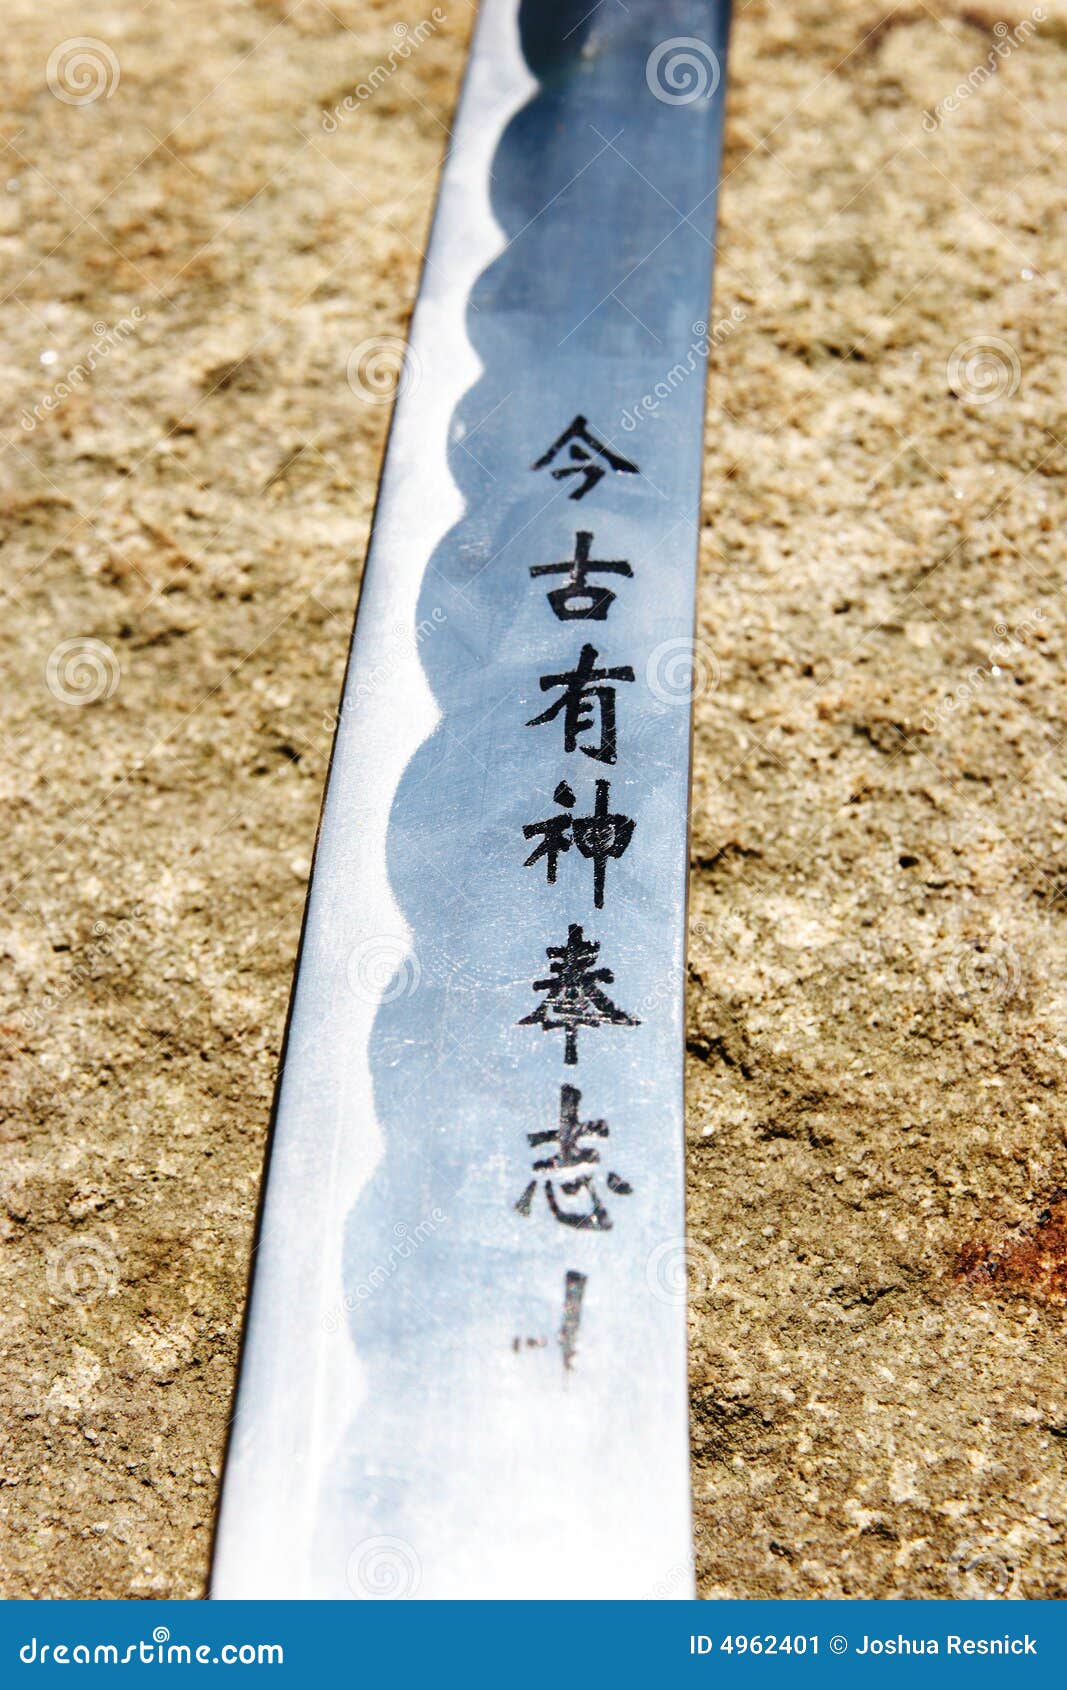 今古有神奉志
dreamstime.com
ID 4962401 © Joshua Resnick